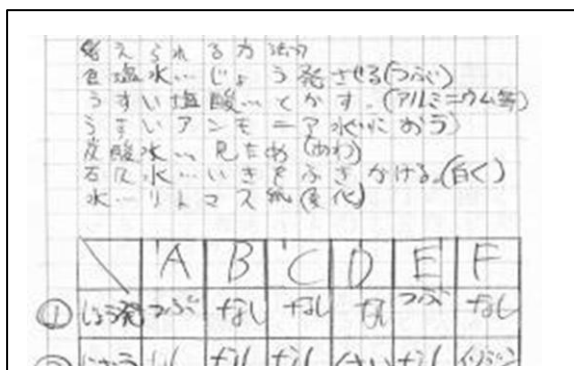 考えられる方法は
食塩水…じょう発させる(つぶ)
うすい塩酸…とかす。(アルミニウム等)
うすいアンモニア水…におう
炭酸水…見ため(あわ)
石灰水…いきをふきかける。(白く)
水…リトマス紙(変化)
A B C D E F
① じょう発 つぶ なし なし なし つぶ なし
② なし なし なし